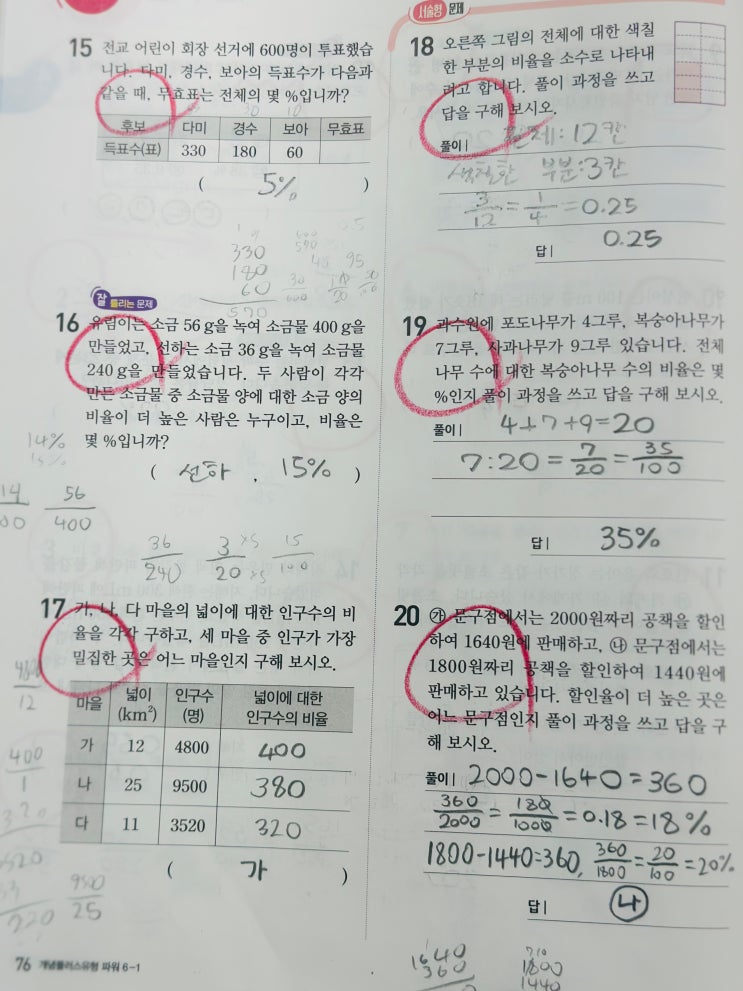 15 전교 어린이 회장 선거에 600명이 투표했습
니다. 다미, 경수, 보아의 득표수가 다음과
같을 때, 무효표는 전체의 몇 %입니까?
후보 다미 경수 보아 무효표
득표수(표) 330 180 60
( 5% )
330
180
60
570
잘 틀리는 문제
16 유림이는 소금 56 g을 녹여 소금물 400 g을
만들었고, 선하는 소금 36 g을 녹여 소금물
240 g을 만들었습니다. 두 사람이 각각
만든 소금물 중 소금물 양에 대한 소금 양의
비율이 더 높은 사람은 누구이고, 비율은
몇 %입니까?
( 선하 , 15% )
14%
15%
56/400
36/240 3/20 ×5 ×5 15/100
17 가, 나, 다 마을의 넓이에 대한 인구수의 비
율을 각각 구하고, 세 마을 중 인구가 가장
밀집한 곳은 어느 마을인지 구해 보시오.
마을 넓이 (km²) 인구수 (명) 넓이에 대한 인구수의 비율
가 12 4800 400
나 25 9500 380
다 11 3520 320
( 가 )
400/1
9500/25
76 개념플러스유형 파워 6-1
서술형 문제
18 오른쪽 그림의 전체에 대한 색칠
한 부분의 비율을 소수로 나타내
려고 합니다. 풀이 과정을 쓰고
답을 구해 보시오.
풀이 | 전체: 12칸
색칠한 부분: 3칸
3/12 = 1/4 = 0.25
답 | 0.25
19 과수원에 포도나무가 4그루, 복숭아나무가
7그루, 사과나무가 9그루 있습니다. 전체
나무 수에 대한 복숭아나무 수의 비율은 몇
%인지 풀이 과정을 쓰고 답을 구해 보시오.
풀이 | 4+7+9=20
7:20 = 7/20 = 35/100
답 | 35%
20 ㉮ 문구점에서는 2000원짜리 공책을 할인
하여 1640원에 판매하고, ㉯ 문구점에서는
1800원짜리 공책을 할인하여 1440원에
판매하고 있습니다. 할인율이 더 높은 곳은
어느 문구점인지 풀이 과정을 쓰고 답을 구
해 보시오.
풀이 | 2000-1640=360
360/2000 = 180/1000 = 0.18 = 18%
1800-1440=360, 360/1800 = 20/100 = 20%
답 | ㉯
1640
360
1800
1440